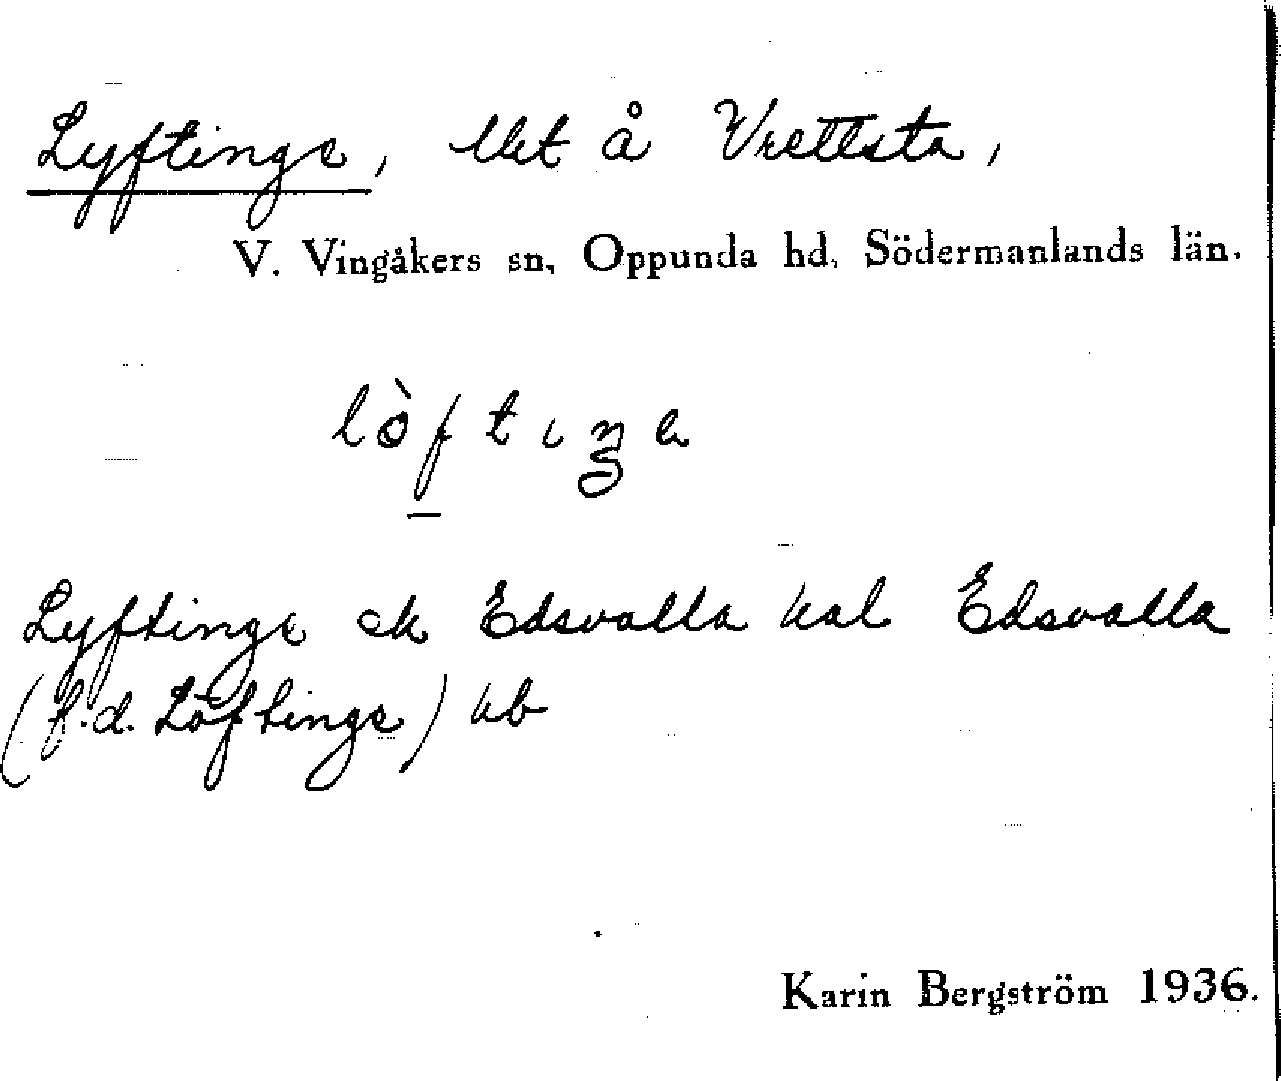 Lyftinge, llet å Vrettsta,
V. Vingåkers sn, Oppunda hd, Södermanlands län.
lòftiŋe
Lyftinge ek Edsvalla kal Edsvalla
(f.d. Löftinge) kb
Karin Bergström 1936.